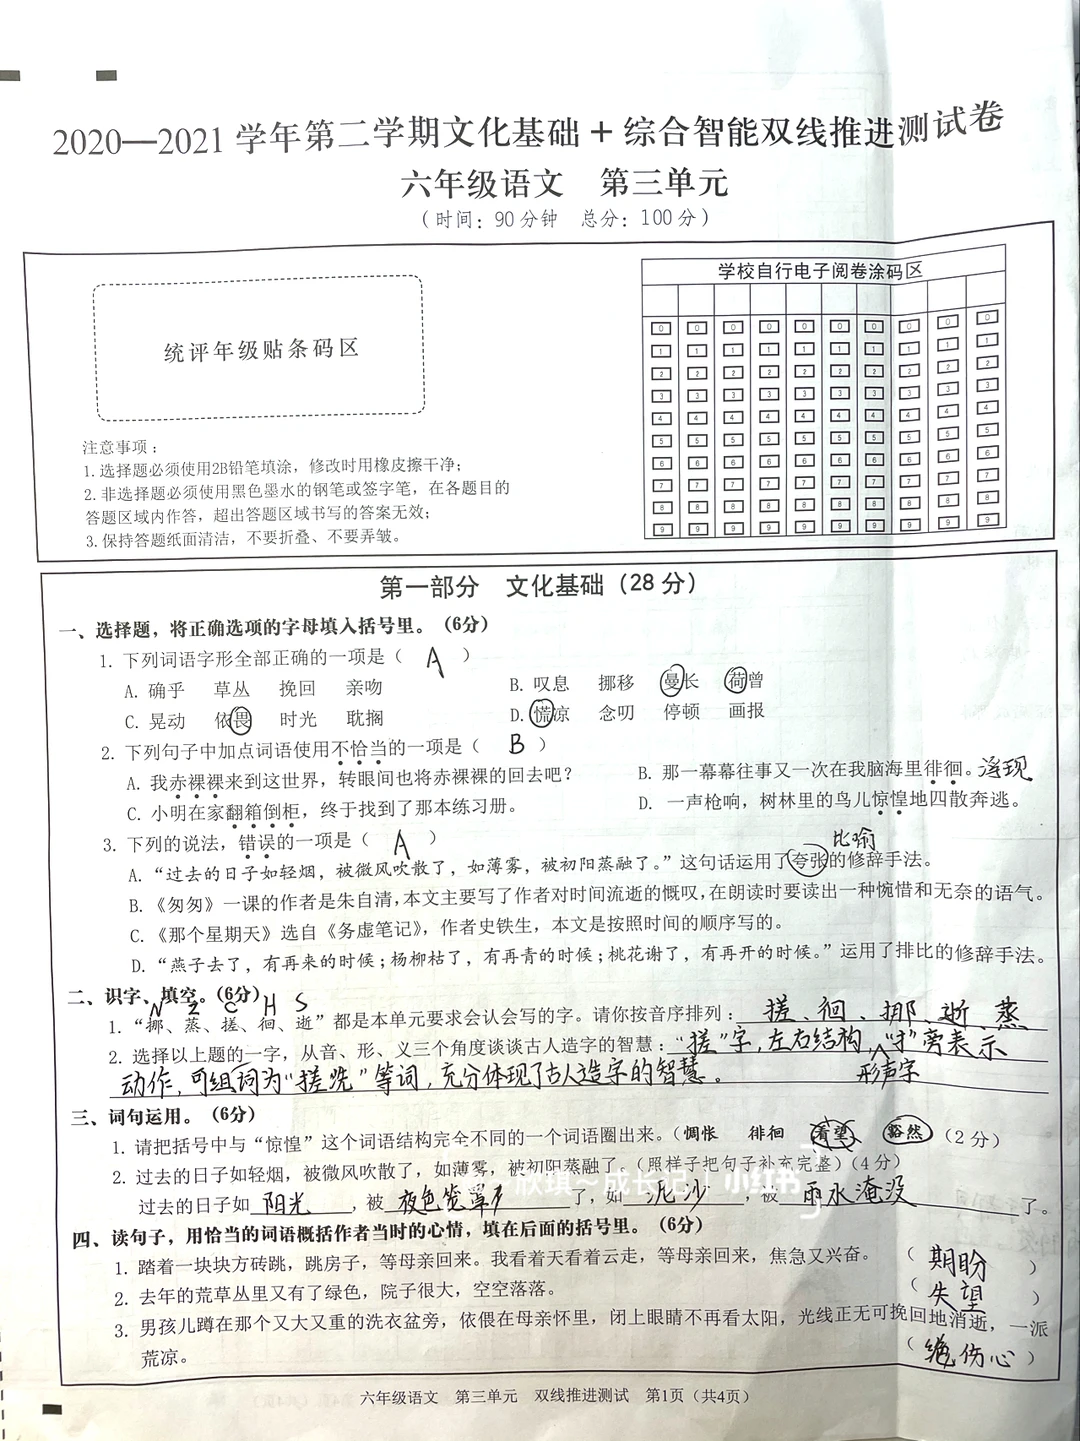 2020—2021学年第二学期文化基础+综合智能双线推进测试卷
六年级语文 第三单元
（时间：90分钟 总分：100分）
统评年级贴条码区
学校自行电子阅卷涂码区
0 0 0 0 0 0 0 0 0 0
1 1 1 1 1 1 1 1 1 1
2 2 2 2 2 2 2 2 2 2
3 3 3 3 3 3 3 3 3 3
4 4 4 4 4 4 4 4 4 4
5 5 5 5 5 5 5 5 5 5
6 6 6 6 6 6 6 6 6 6
7 7 7 7 7 7 7 7 7 7
8 8 8 8 8 8 8 8 8 8
9 9 9 9 9 9 9 9 9 9
注意事项：
1.选择题必须使用2B铅笔填涂，修改时用橡皮擦干净；
2.非选择题必须使用黑色墨水的钢笔或签字笔，在各题目的
答题区域内作答，超出答题区域书写的答案无效；
3.保持答题纸面清洁，不要折叠、不要弄皱。
第一部分 文化基础（28分）
一、选择题，将正确选项的字母填入括号里。（6分）
1. 下列词语字形全部正确的一项是（ A ）
A. 确乎 草丛 挽回 亲吻 B. 叹息 挪移 曼长 荷曾
C. 晃动 依畏 时光 耽搁 D. 慌凉 念叨 停顿 画报
2. 下列句子中加点词语使用不恰当的一项是（ B ）
A. 我赤裸裸来到这世界，转眼间也将赤裸裸的回去吧？ B. 那一幕幕往事又一次在我脑海里徘徊。浮现
C. 小明在家翻箱倒柜，终于找到了那本练习册。 D. 一声枪响，树林里的鸟儿惊惶地四散奔逃。
3. 下列的说法，错误的一项是（ A ）
比喻
A. “过去的日子如轻烟，被微风吹散了，如薄雾，被初阳蒸融了。”这句话运用了夸张的修辞手法。
B.《匆匆》一课的作者是朱自清，本文主要写了作者对时间流逝的慨叹，在朗读时要读出一种惋惜和无奈的语气。
C.《那个星期天》选自《务虚笔记》，作者史铁生，本文是按照时间的顺序写的。
D. “燕子去了，有再来的时候；杨柳枯了，有再青的时候；桃花谢了，有再开的时候。”运用了排比的修辞手法。
二、识字、填空。（6分）
N Z C H S
1. “挪、蒸、搓、徊、逝”都是本单元要求会认会写的字。请你按音序排列：搓、徊、挪、逝、蒸
2. 选择以上题的一字，从音、形、义三个角度谈谈古人造字的智慧：“搓”字，左右结构，“扌”旁表示
动作，可组词为“搓洗”等词，充分体现了古人造字的智慧。 形声字
三、词句运用。（6分）
1. 请把括号中与“惊惶”这个词语结构完全不同的一个词语圈出来。（惆怅 徘徊 看望 豁然）（2分）
2. 过去的日子如轻烟，被微风吹散了，如薄雾，被初阳蒸融了。（照样子把句子补充完整）（4分）
～欣琪～成长记 小红书
过去的日子如阳光，被夜色笼罩了，如泥沙，被雨水淹没了。
四、读句子，用恰当的词语概括作者当时的心情，填在后面的括号里。（6分）
1. 踏着一块块方砖跳，跳房子，等母亲回来。我看着天看着云走，等母亲回来，焦急又兴奋。（期盼）
2. 去年的荒草丛里又有了绿色，院子很大，空空落落。（失望）
3. 男孩儿蹲在那个又大又重的洗衣盆旁，依偎在母亲怀里，闭上眼睛不再看太阳，光线正无可挽回地消逝，一派
荒凉。（伤心）
六年级语文 第三单元 双线推进测试 第1页（共4页）